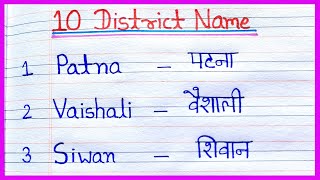 10 District Name
1 Patna – पटना
2 Vaishali – वैशाली
3 Siwan – शिवान